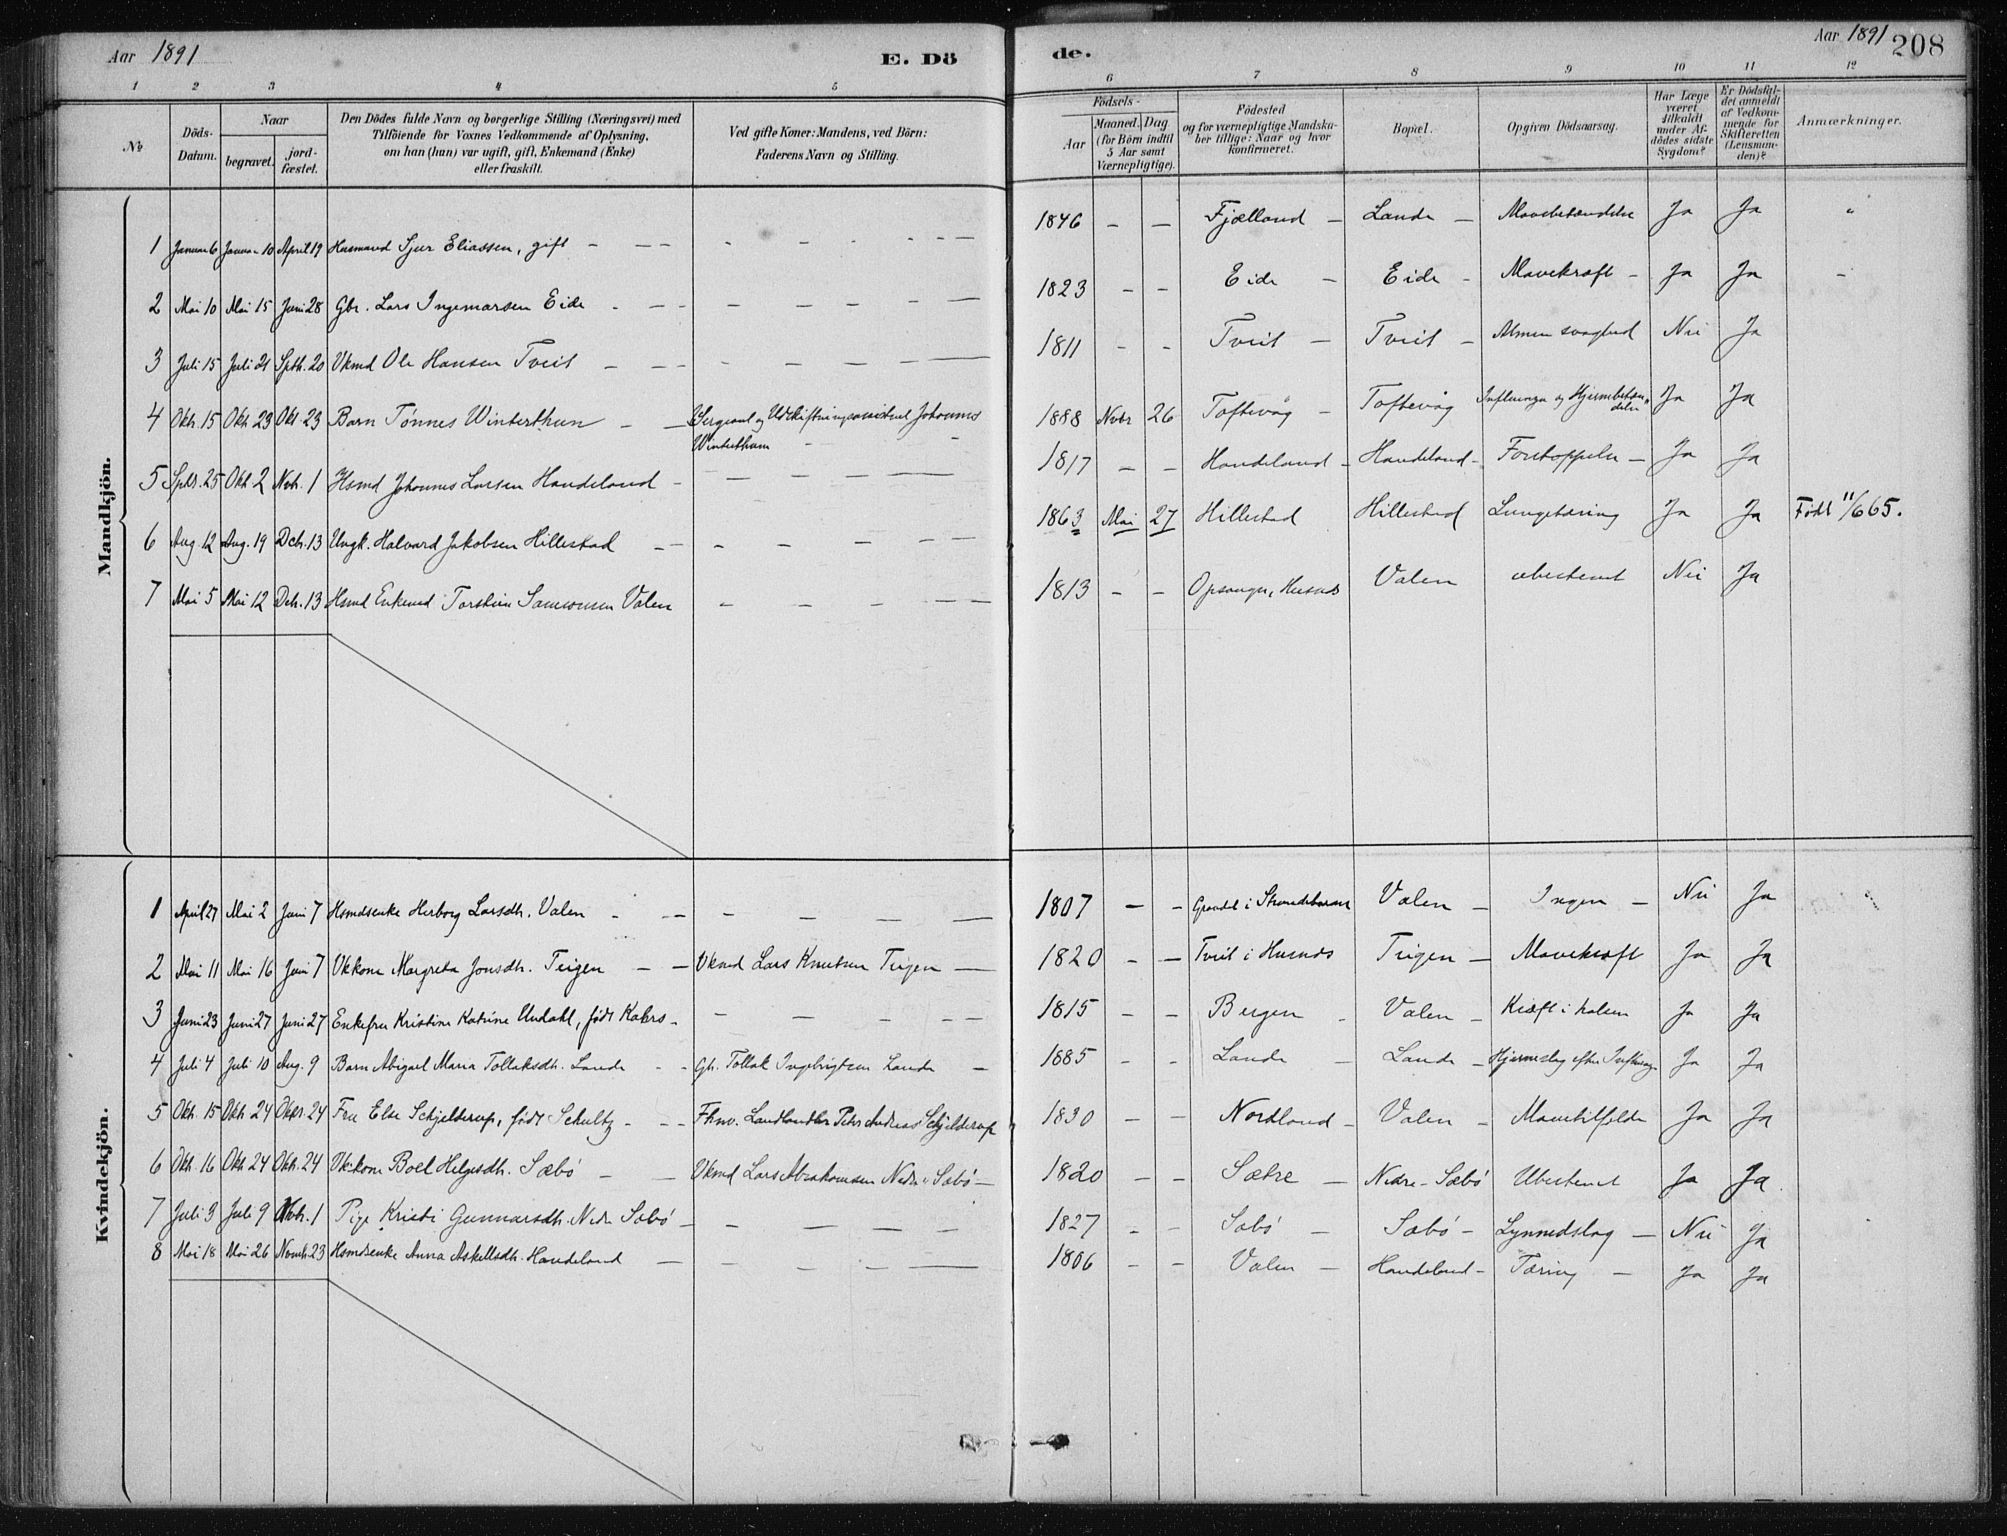 Aar 1891 E. Dö de. Aar 1891 208
1 2 3 4 5 6 7 8 9 10 11 12
№
Döds-Datum.
Naar
begravet.
jord-fæstet.
Den Dödes fulde Navn og borgerlige Stilling (Næringsvei) med
Tilföiende for Voxnes Vedkommende af Oplysning,
om han (hun) var ugift, gift, Enkemand (Enke)
eller fraskilt.
Ved gifte Koner: Mandens, ved Börn:
Faderens Navn og Stilling.
Födsels-
Aar
Maaned. Dag
(for Börn indtil
5 Aar samt
Værnepligtige).
Födested
og for værnepligtige Mandska-
ber tillige: Naar og hvor
konfirmeret.
Bopæl.
Opgiven Dödsaarsag.
Har Læge
været
tilkaldt
under Af-
dödes sidste
Sygdom?
Er Dödsfal-
det anmeldt
af Vedkom-
mende for
Skifteretten
(Lensman-
den)?
Anmærkninger.
Mandkjön.
1 Januar 6 Januar 10 April 19 Husmand Sjur Eliassen, gift - - - 1846 - - Fjælland - Lande - Mavebetændelse Ja Ja "
2 Mai 10 Mai 15 Juni 28 Gbr. Lars Ingemarsen Eide - - - 1823 - - Eide - Eide - Mavekræft - Ja Ja -
3 Juli 15 Juli 21 Septb. 20 Vkmd Ole Hansen Tveit - - - 1811 - - Tveit - Tveit - Almen svaghed Nei Ja
4 Oktr. 15 Oktr 23 Okt 23 Barn Tønnes Winterthun - - Sergeant og Udskiftningsassistent Johannes
Winterthun - - 1888 Nvbr 26 Toftevåg - Toftevåg Influenza og Hjernebetæn-
delse Ja Ja
5 Sptr. 25 Oktr 2 Nvbr. 1 Hsmd Johannes Larsen Handeland - - - 1817 - - Handeland - Handeland - Forstoppelse - Ja Ja
6 Aug. 12 Aug. 19 Dcb. 13 Ungk. Halvard Jakobsen Hillestad - - - 1863 Mai 27 Hillestad Hillestad Lungetæring Ja Ja Født 11/6 65.
7 Mai 5 Mai 12 Dcb. 13 Hsmd Enkemd Torstein Samsonsen Valen - - - 1813 - - Opsanger, Husnæs Valen ubestemt Nei Ja
Kvindekjön.
1 April 27 Mai 2 Juni 7 Hsmdsenke Herborg Larsdtr. Valen - - - 1807 - - i Strandebarm Valen - Ingen - Nei Ja
2 Mai 11 Mai 16 Juni 7 Vkkone Margreta Jonsdtr. Teigen - - Vkmd Lars Knutsen Teigen - 1820 - - Tveit i Husnæs Teigen - Mavekræft Ja Ja
3 Juni 23 Juni 27 Juni 27 Enkefru Kristine Katrine Undahl, født Kahrs - - - 1815 - - Bergen - Valen - Kræft i halsen Ja Ja
4 Juli 4 Juli 10 Aug. 9 Barn Abigael Maria Tollaksdtr. Lande - - Gb. Tollak Ingebrigtsen Lande - 1885 - - Lande - Lande - Hjerneslag efter Influenza Ja Ja
5 Oktr. 15 Oktr 24 Oktr. 24 Fru Else Schjelderup, født Schultz - - Fhnv. Landhandler Peter Andreas Schjelderup 1830 - - Nordland - Valen - Mavetilfælde Ja Ja
6 Oktr. 16 Oktr 24 Oktr. 24 Vkkone Boel Helgesdtr. Sæbø - - Vkmd Lars Abrahamsen Nedre Sæbø - 1820 - - Sætre - Nedre-Sæbø Ubestemt Ja Ja
7 Juli 3 Juli 9 Nvbr. 1 Pige Kristi Gunnarsdtr. Nedre Sæbø - - - 1827 - Sæbø - Sæbø - Lynnedslag - Nei Ja
8 Mai 18 Mai 26 Novmb. 23 Hsmdsenke Anna Askellsdtr. Handeland - - - 1806 - - Valen - Handeland - Tæring - Ja Ja